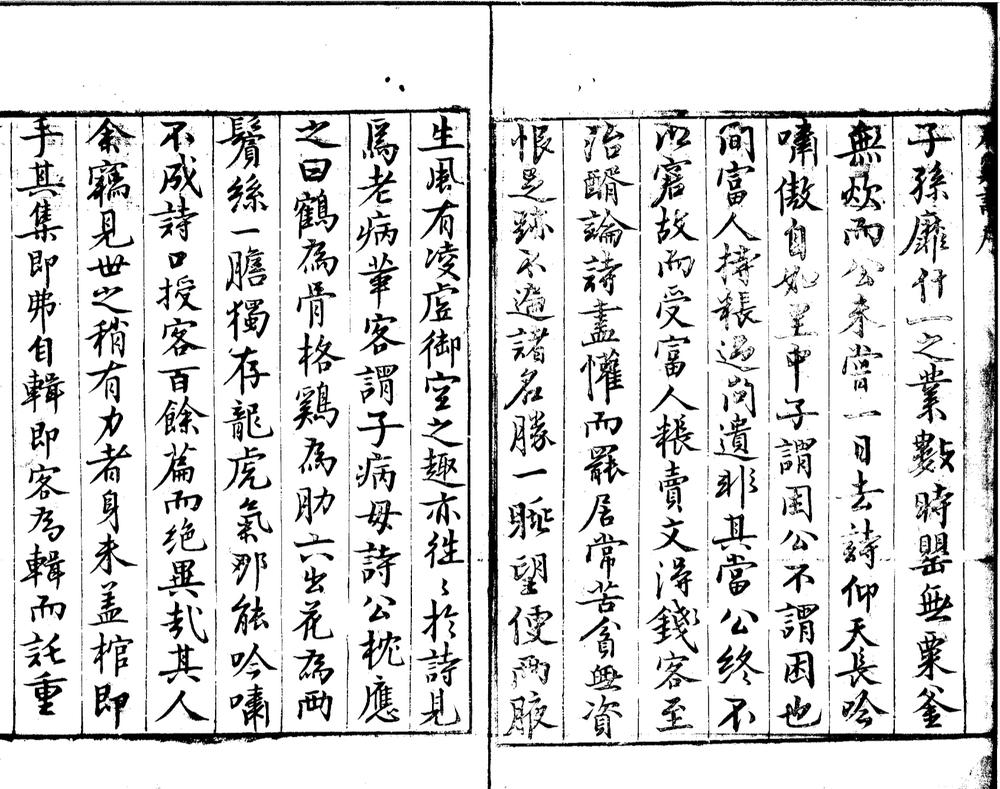 子孫靡什一之業數時罌無粟釜
無炊而公未嘗一日去詩仰天長吟
嘯傲自如里中子謂困公不謂困也
間富人持粻過問遺非其當公終不
以窘故而受富人粻賣文得錢客至
治醑論詩盡懽而罷居常苦貧無資
恨足跡不遍諸名勝一眺望便兩腋
生風有凌虛御空之趣亦往〻於詩見
焉老病革客謂子病毋詩公枕應
之曰鶴為骨格鷄為肋六出花為兩
鬢絲一膽獨存龍虎氣那能吟嘯
不成詩口授客百餘篇而絕異哉其人
余竊見世之稍有力者身未盖棺即
手其集即弗自輯即客為輯而託重